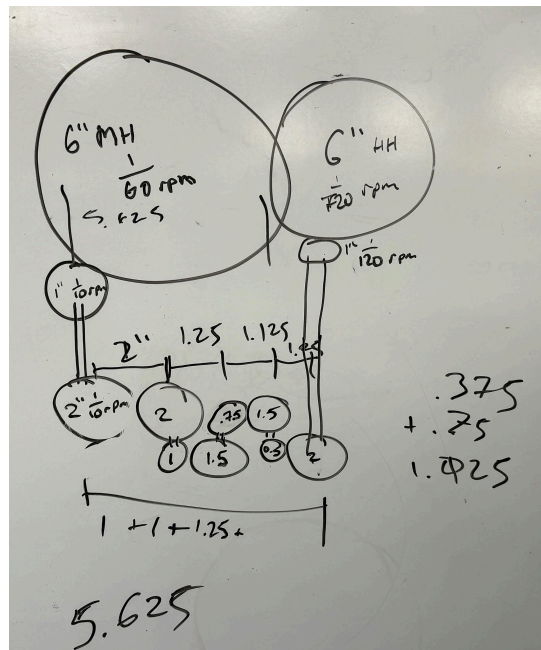 6" MH
1/60 rpm
5.625
6" HH
1/720 rpm
1" 1/10 rpm
1" 1/120 rpm
2" 1.25 1.125 1.25
2" 1/10 rpm
2
.75
1.5
1
1.5
0.5
2
1 + 1 + 1.25 +
.375
+ .75
1.125
5.625